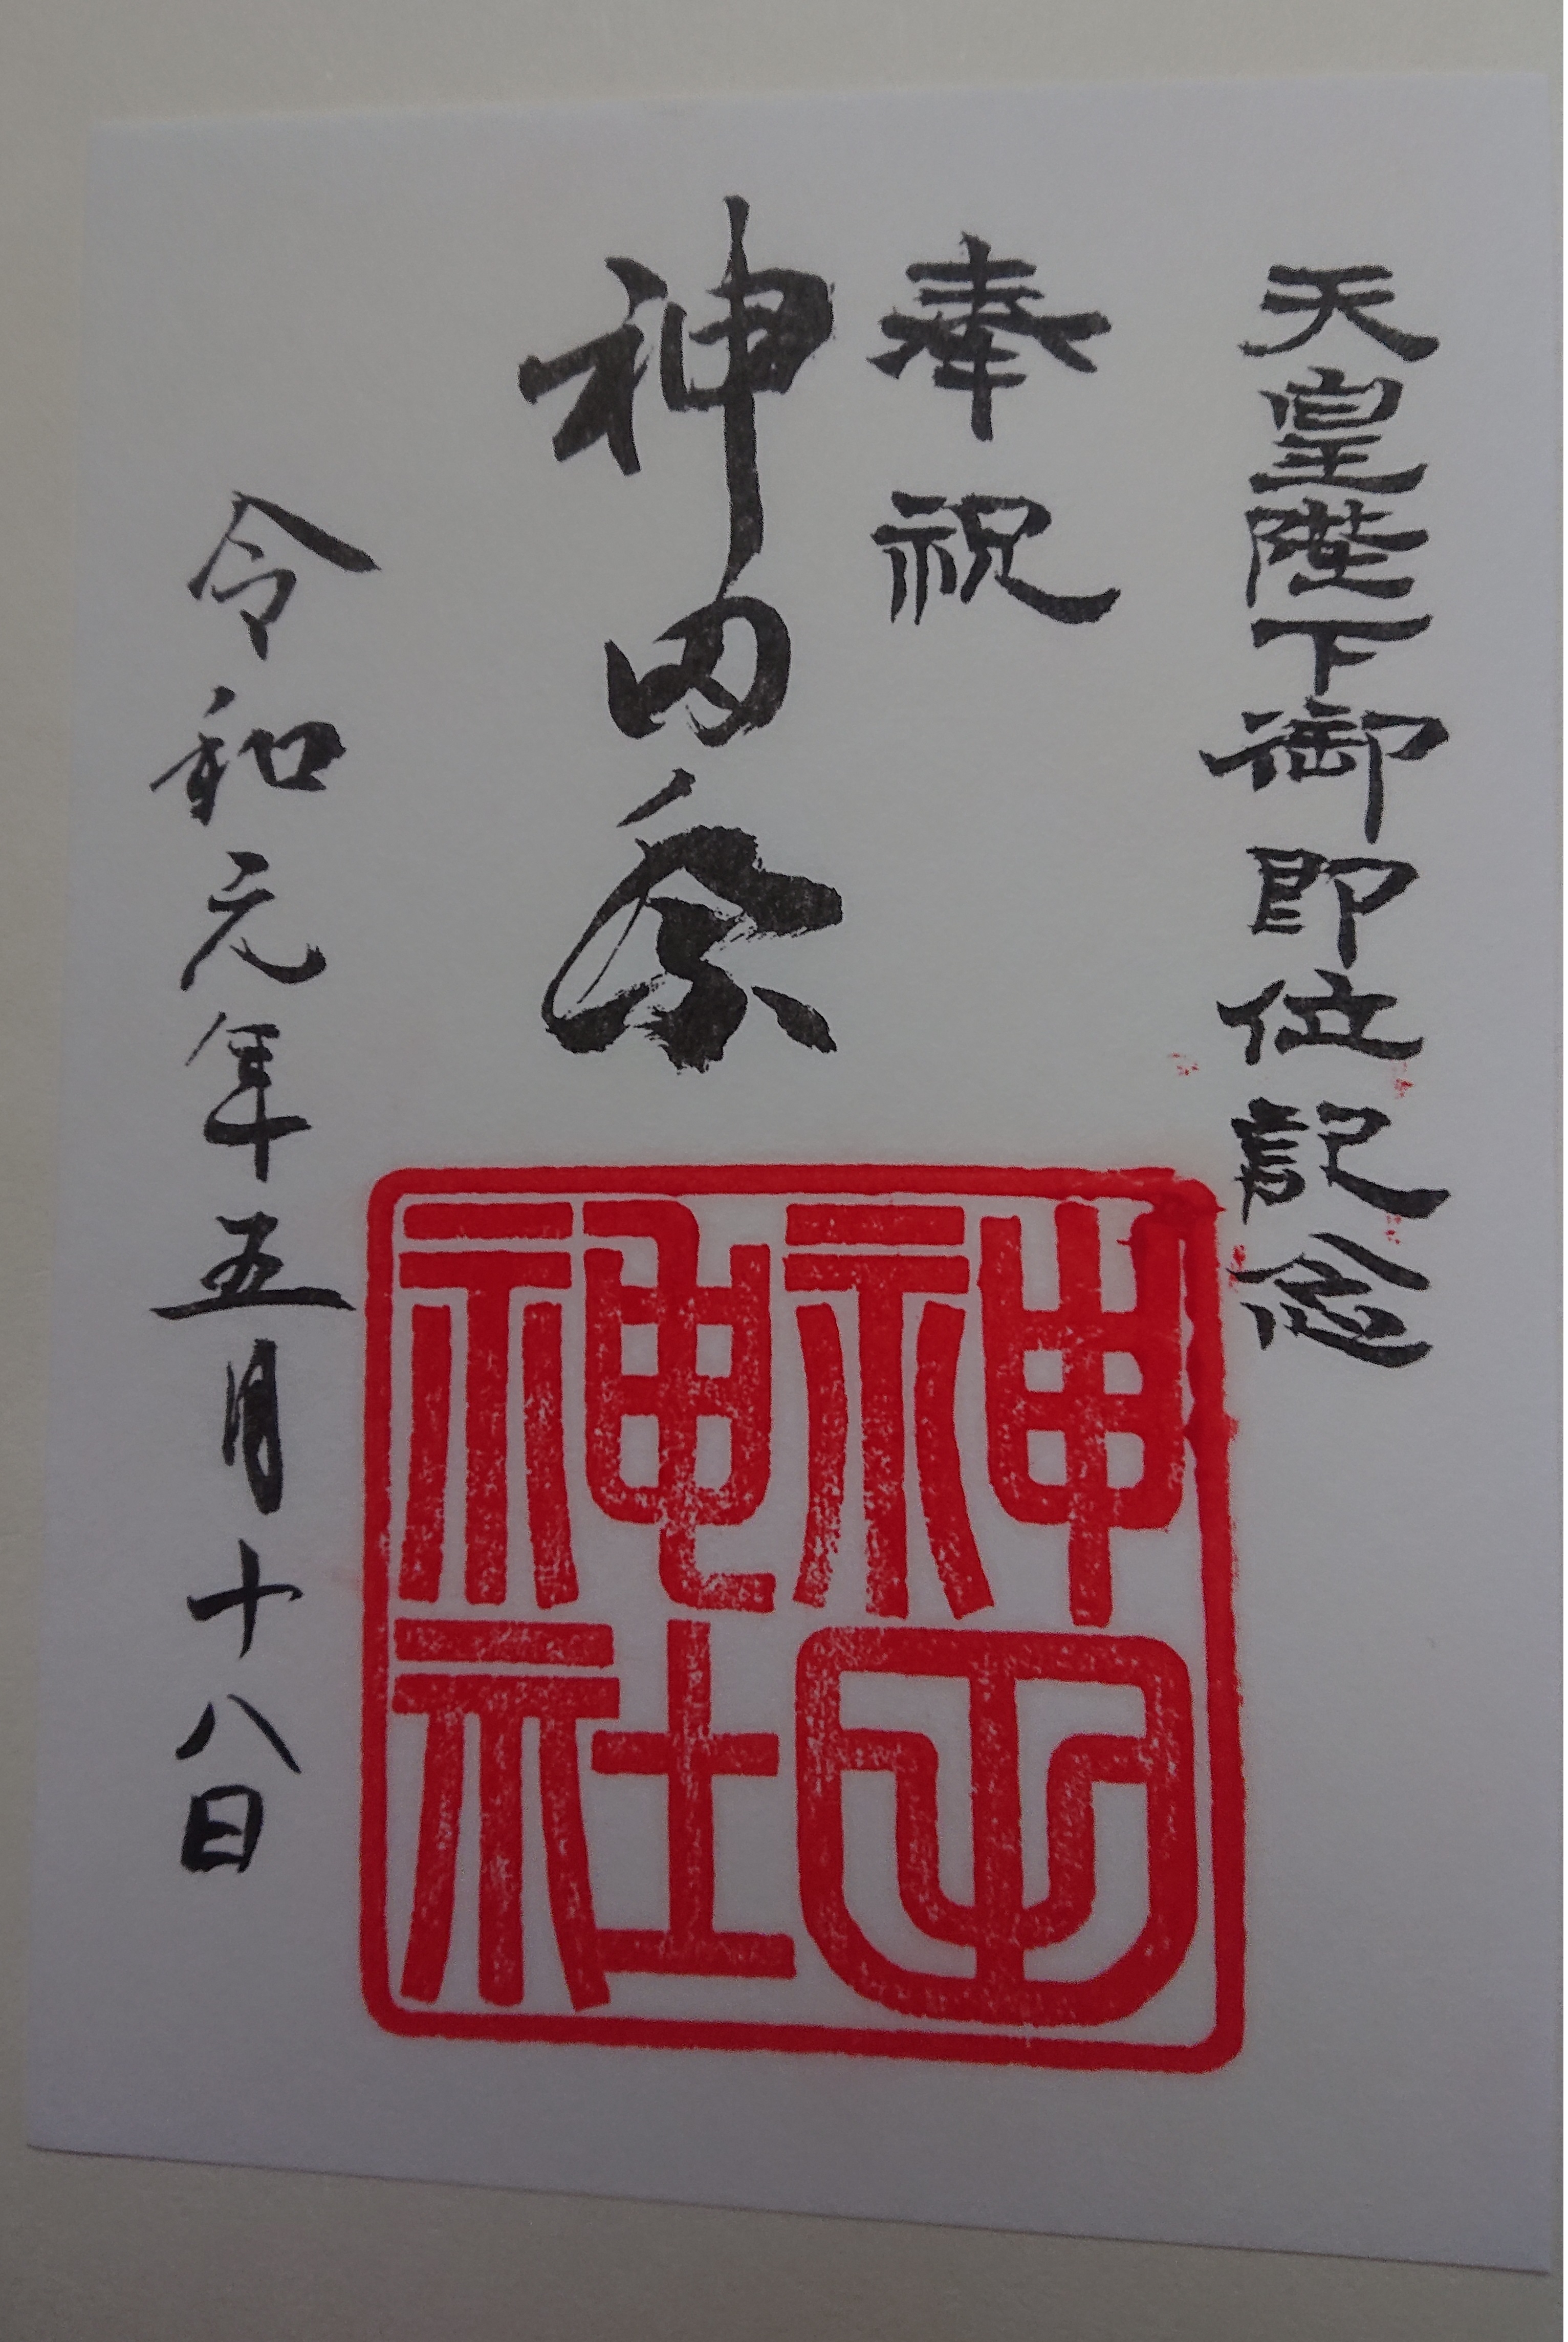 天皇陛下御即位記念
奉祝
神田祭
令和元年五月十八日
神田
神社